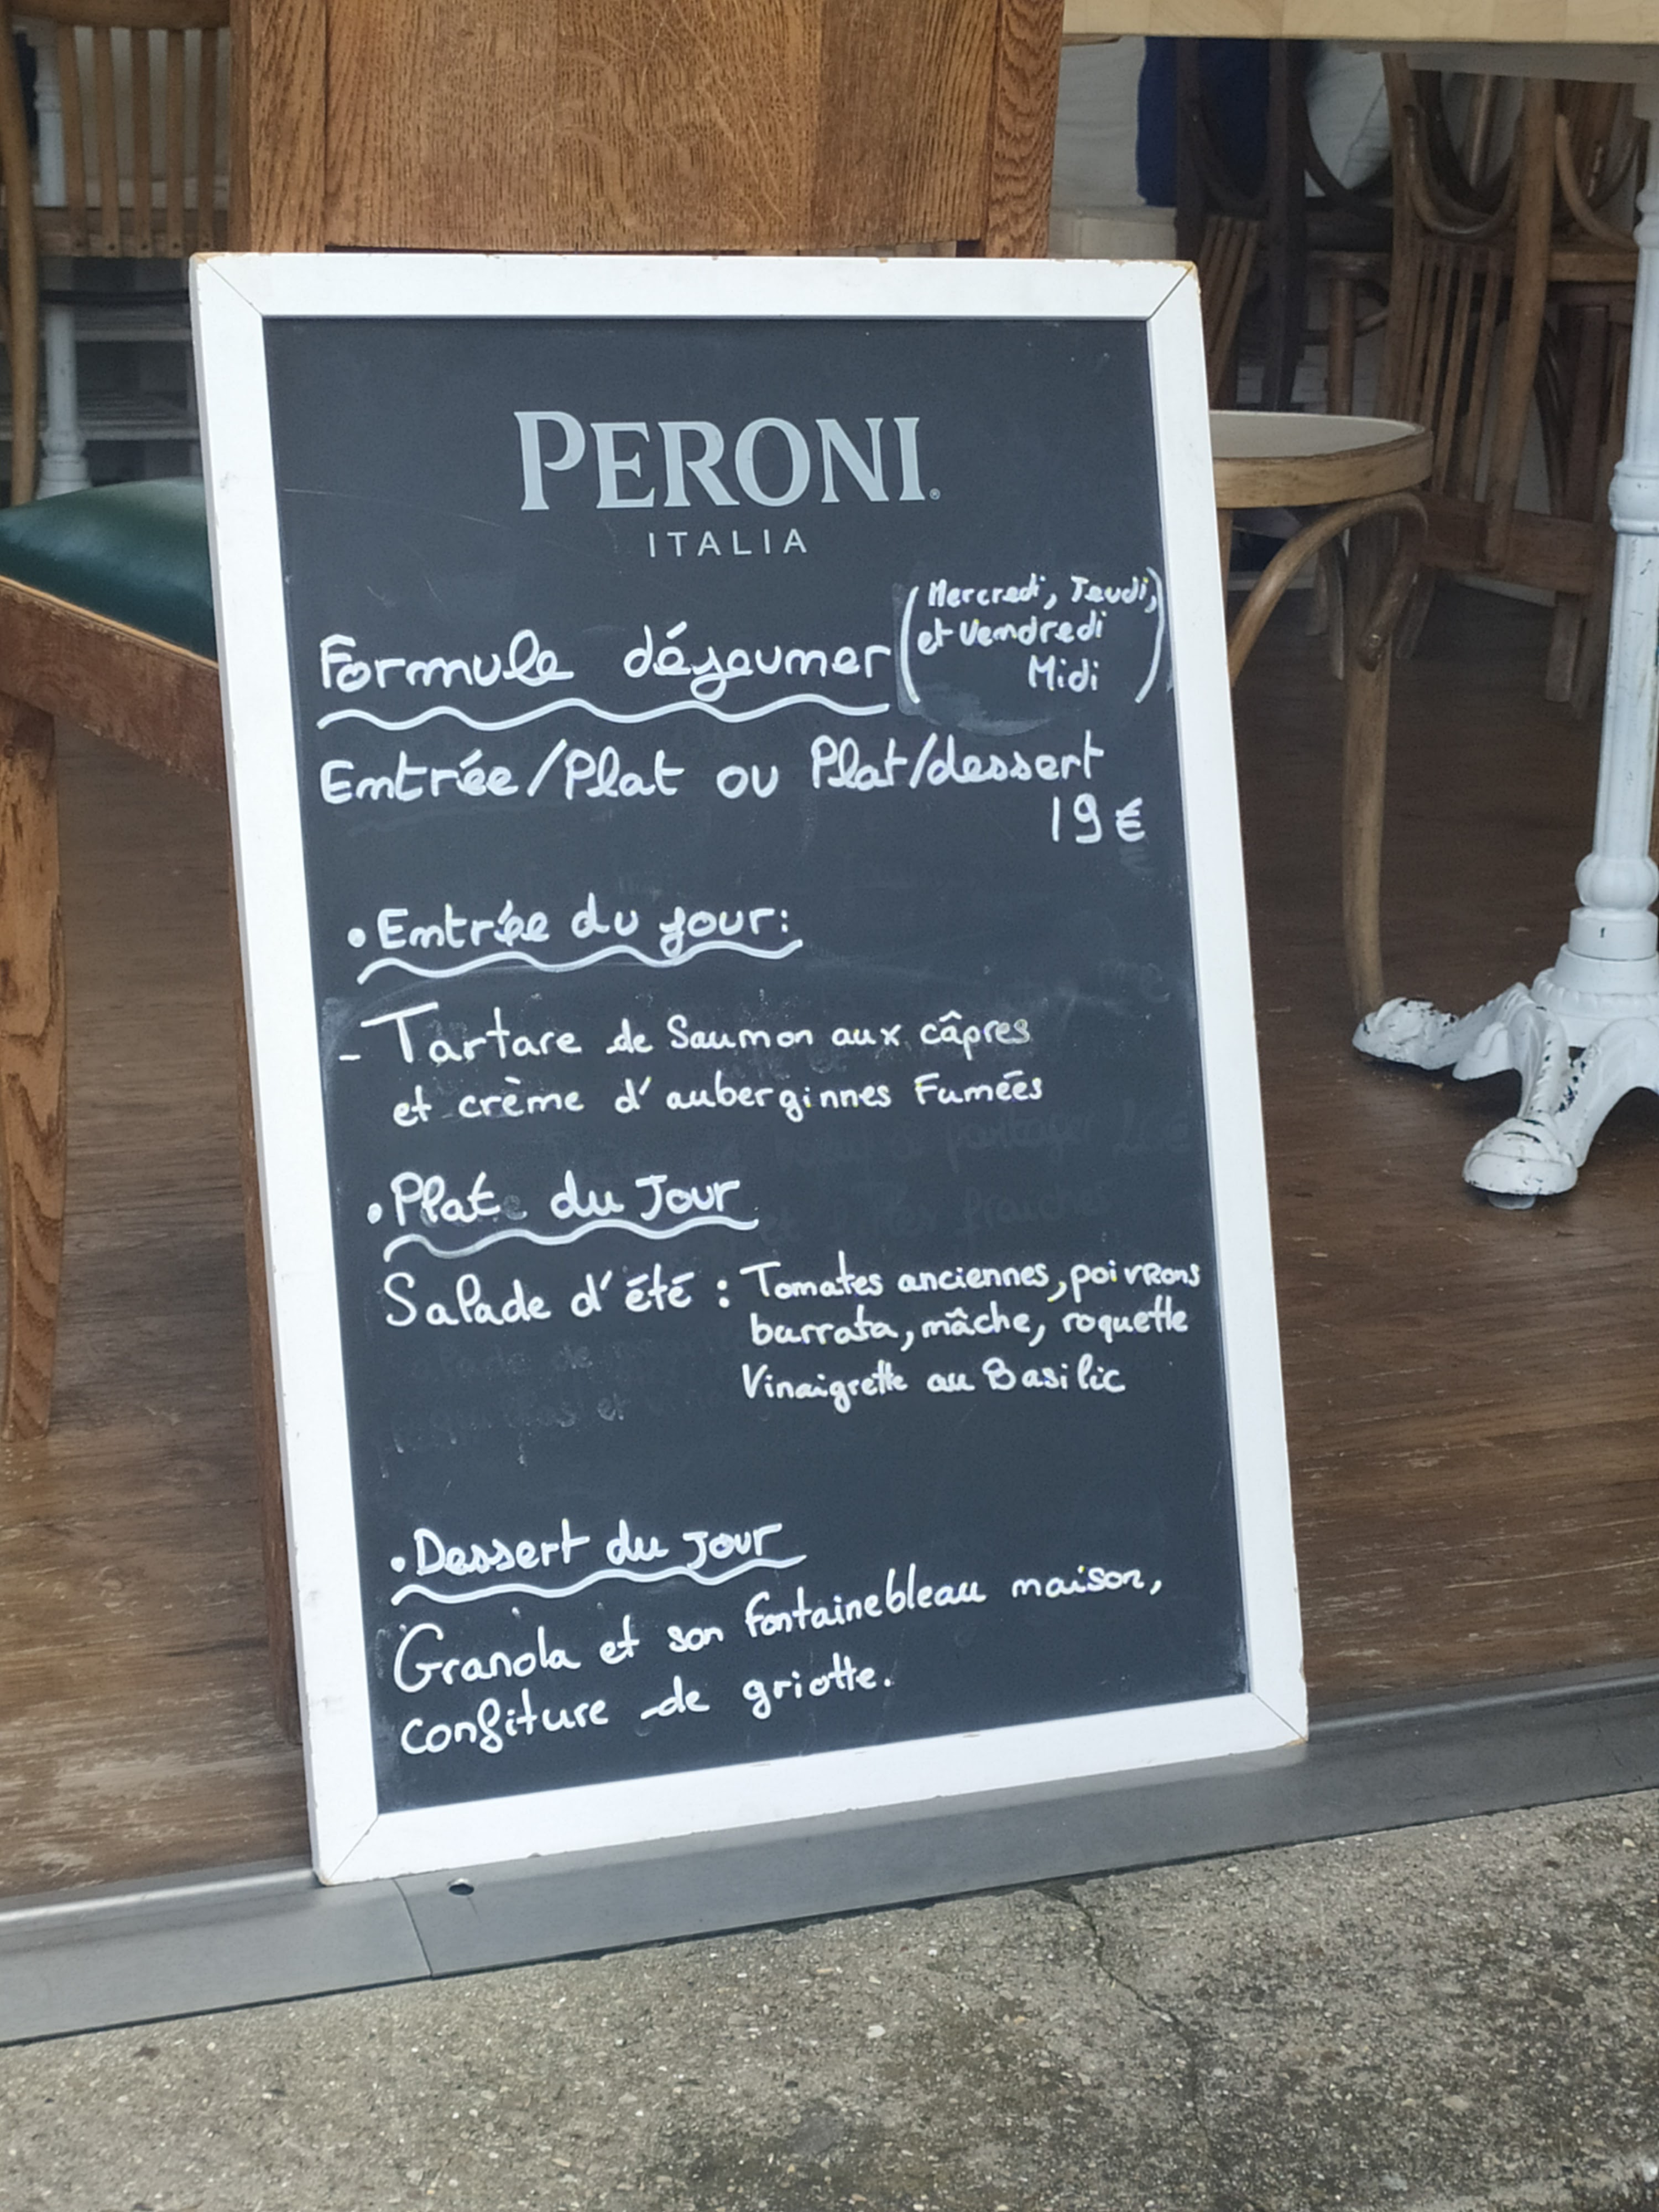 PERONI
ITALIA
Formule déjeuner (Mercredi, Jeudi,
et Vendredi
Midi)
Entrée/Plat ou Plat/dessert
19€
• Entrée du jour:
- Tartare de Saumon aux câpres
et crème d'auberginnes Fumées
• Plat du Jour
Salade d'été : Tomates anciennes, poivrons
burrata, mâche, roquette
Vinaigrette au Basilic
• Dessert du Jour
Granola et son fontainebleau maison,
confiture de griotte.